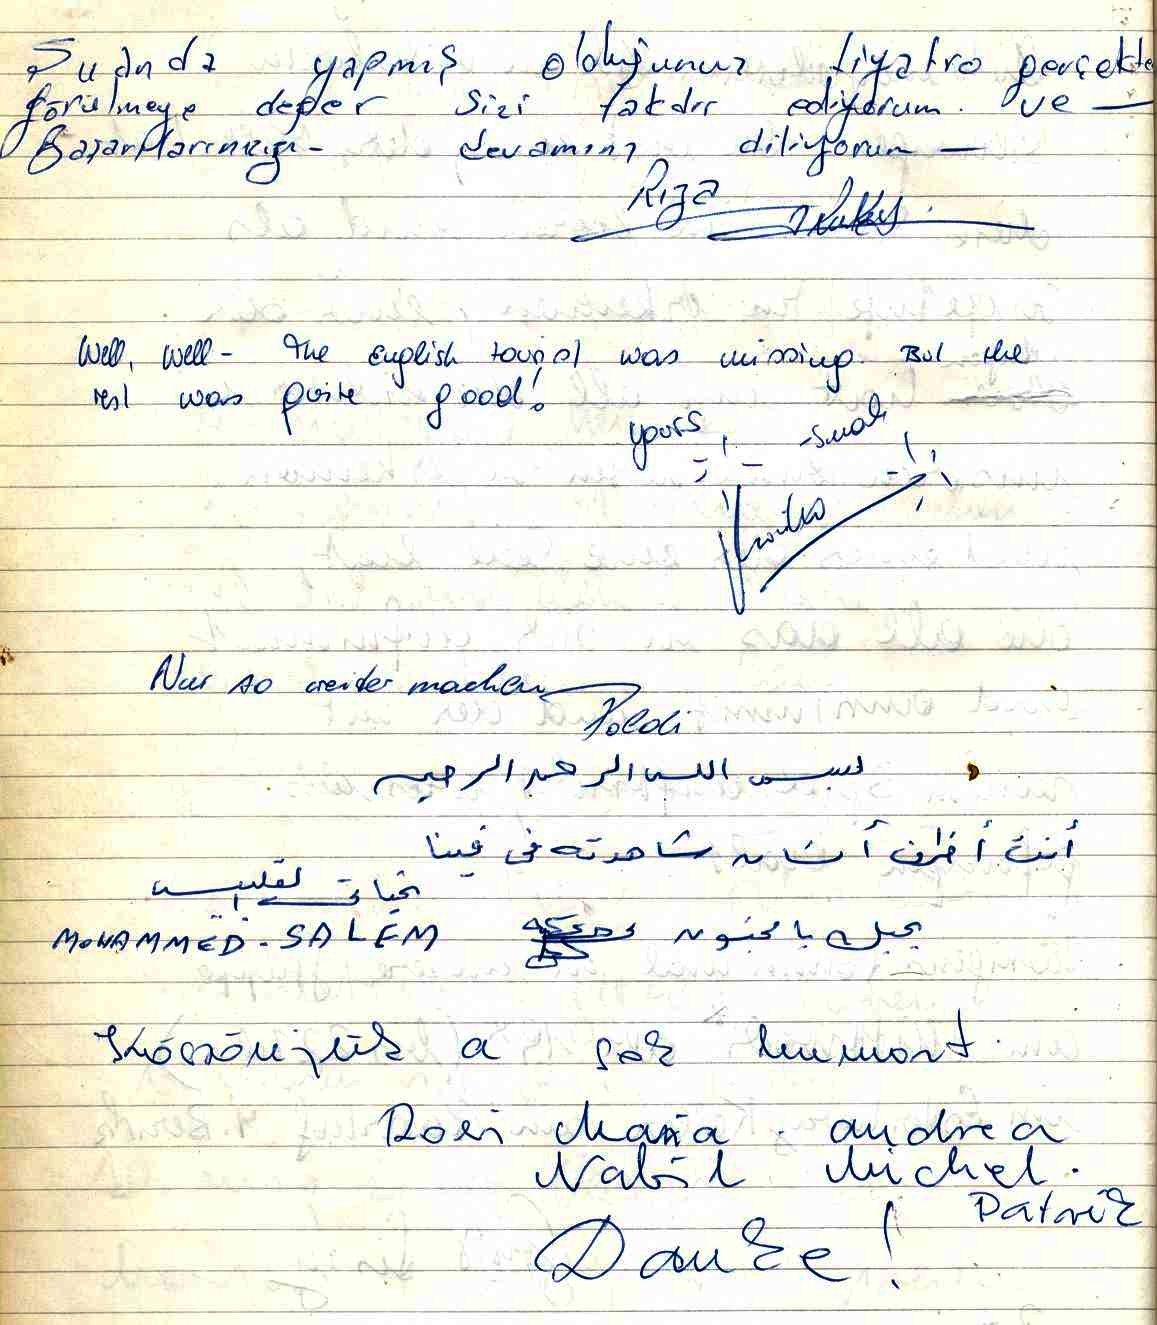 Şu anda yapmış olduğunuz tiyatro gerçekten
görülmeye değer sizi takdir ediyorum ve —
Başarılarınızın devamını diliyorum —
Rıza
Well, well - The english tourist was missing. But the
rest was quite good!
yours
Nur so weiter machen
Poldi
بسم الله الرحمن الرحيم
أنت أظرف أنسان شاهدته فى فينا
تحياتى
MOHAMMED - SALEM
يا مجنون
Köszönjük a sok humort.
Rosi Maria. andrea
Nabil Michel.
Patrik
Danke!